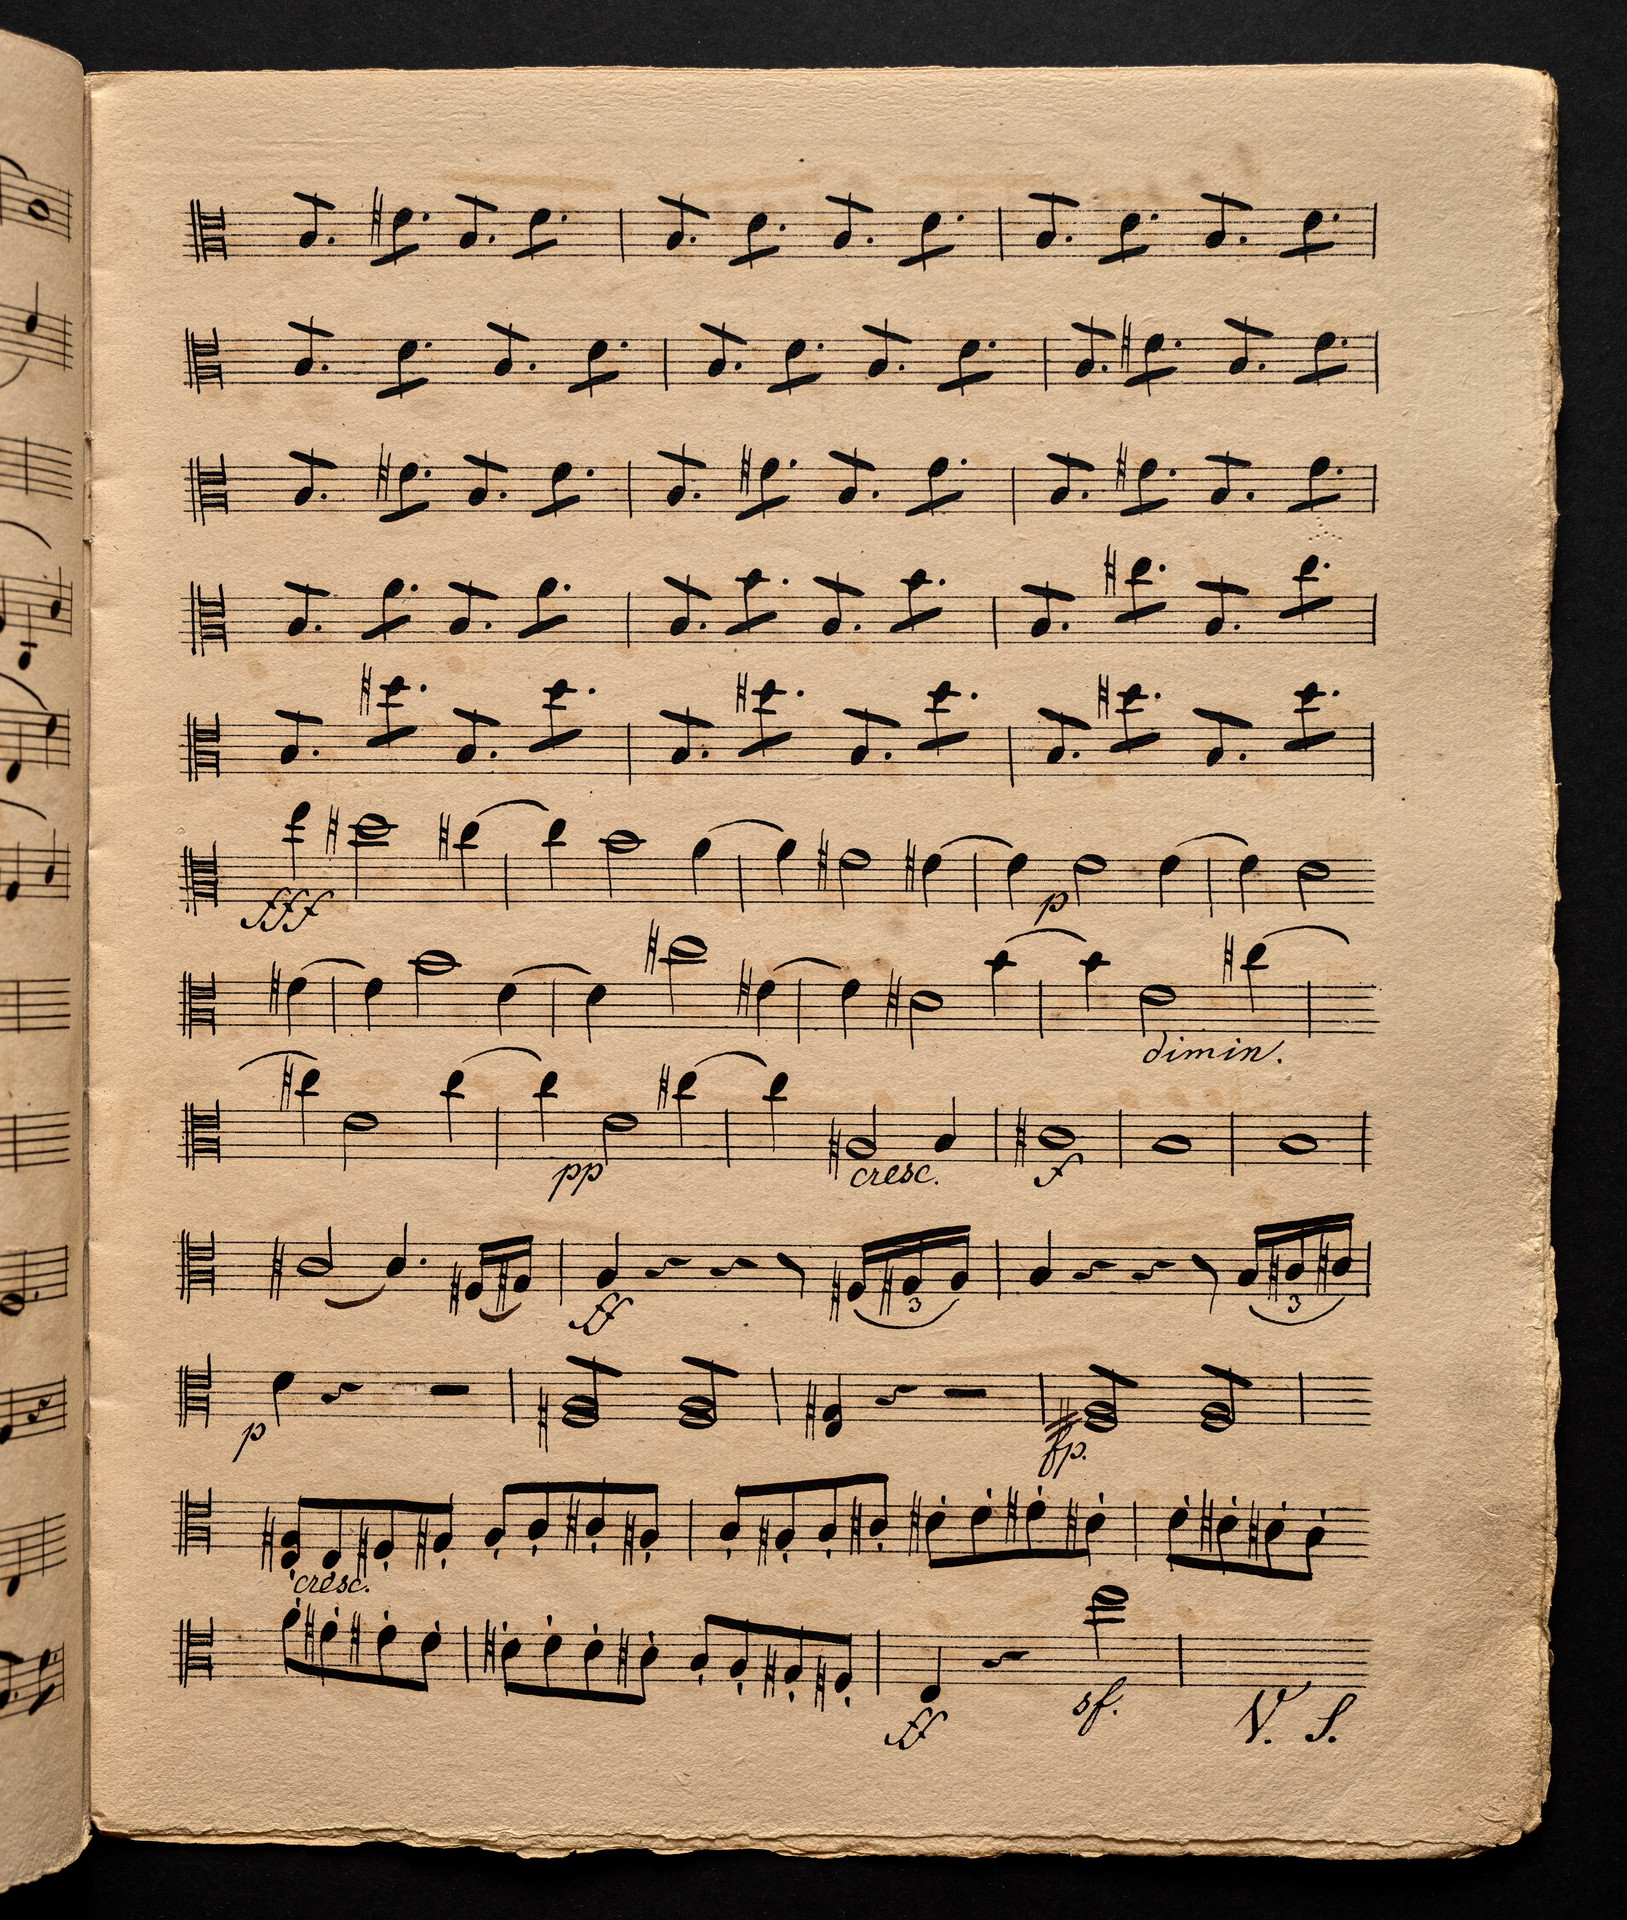 fff p
dimin.
pp cresc. f
ff 3 3
p fp.
cresc.
ff sf. V. S.